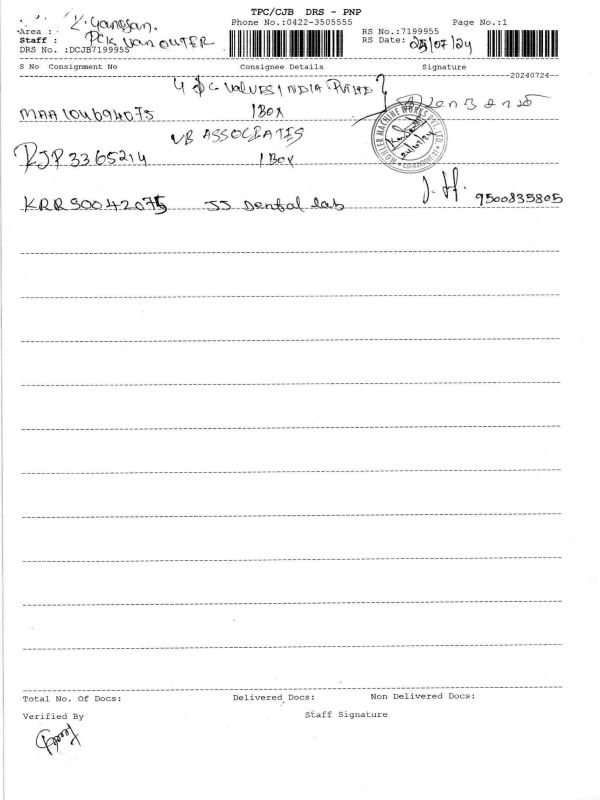 TPC/CJB DRS - PNP
Phone No.:0422-3505555 Page No.:1
Area :
Staff : PCK van OUTER
RS No.:7199955
RS Date: 25/07/24
DRS No. :DCJB7199955
S No Consignment No Consignee Details Signature
20240724
VALVES INDIA Pvt Ltd
MAA104694075 1 BOX
VB ASSOCIATES
RJP3365214 1 BOX
KRR50042075 JJ Dental lab 9500835805
Total No. Of Docs: Delivered Docs: Non Delivered Docs:
Verified By Staff Signature